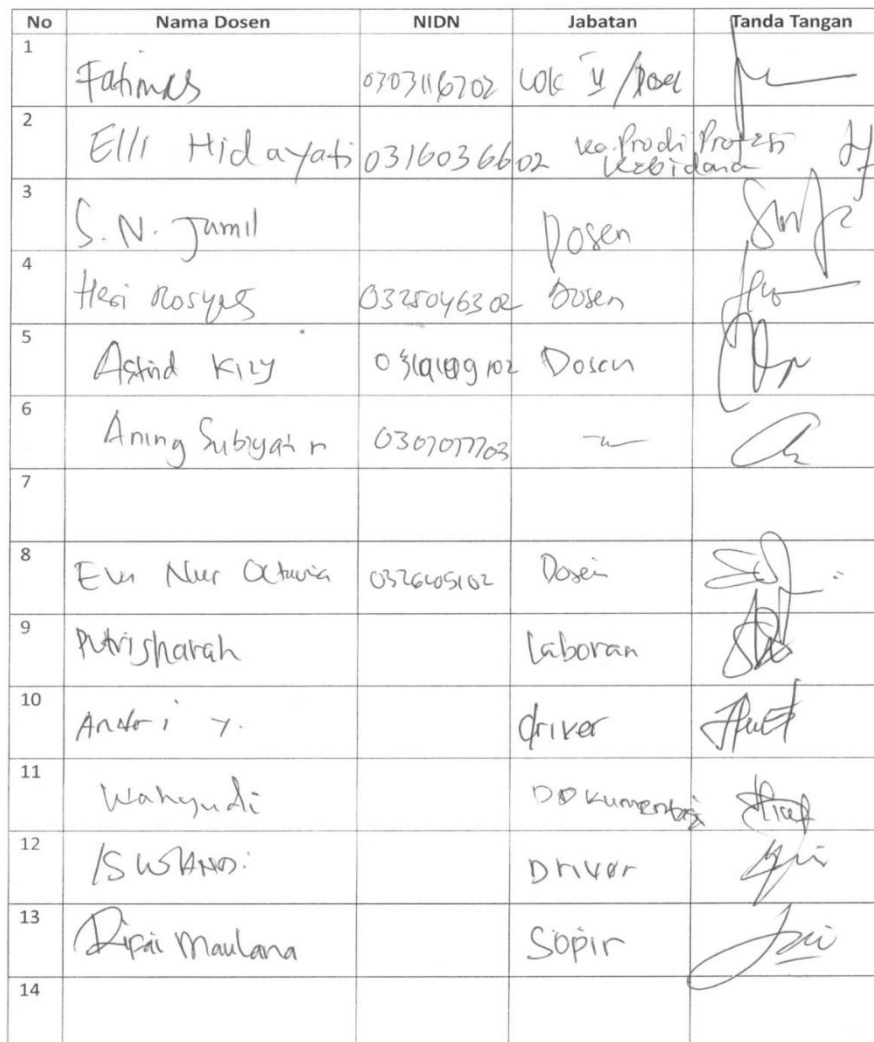 No Nama Dosen NIDN Jabatan Tanda Tangan
1 Fatimah 0303116702 /Dosen
2 Elli Hidayati 0316036602 Ka. Prodi Profesi
Kebidana
3 S. N. Jamil Dosen
4 Heri Rosyati 0325046302 Dosen
5 Astrid Kizy Dosen
6 Aning Subiyatin 0307077703
7
8 Eva Nur Octavia Dosen
9 Putri sharah Laboran
10 Andri Y. driver
11 Wahyudi Dokumentasi
12 ISWANDi Driver
13 Ripai Maulana Sopir
14